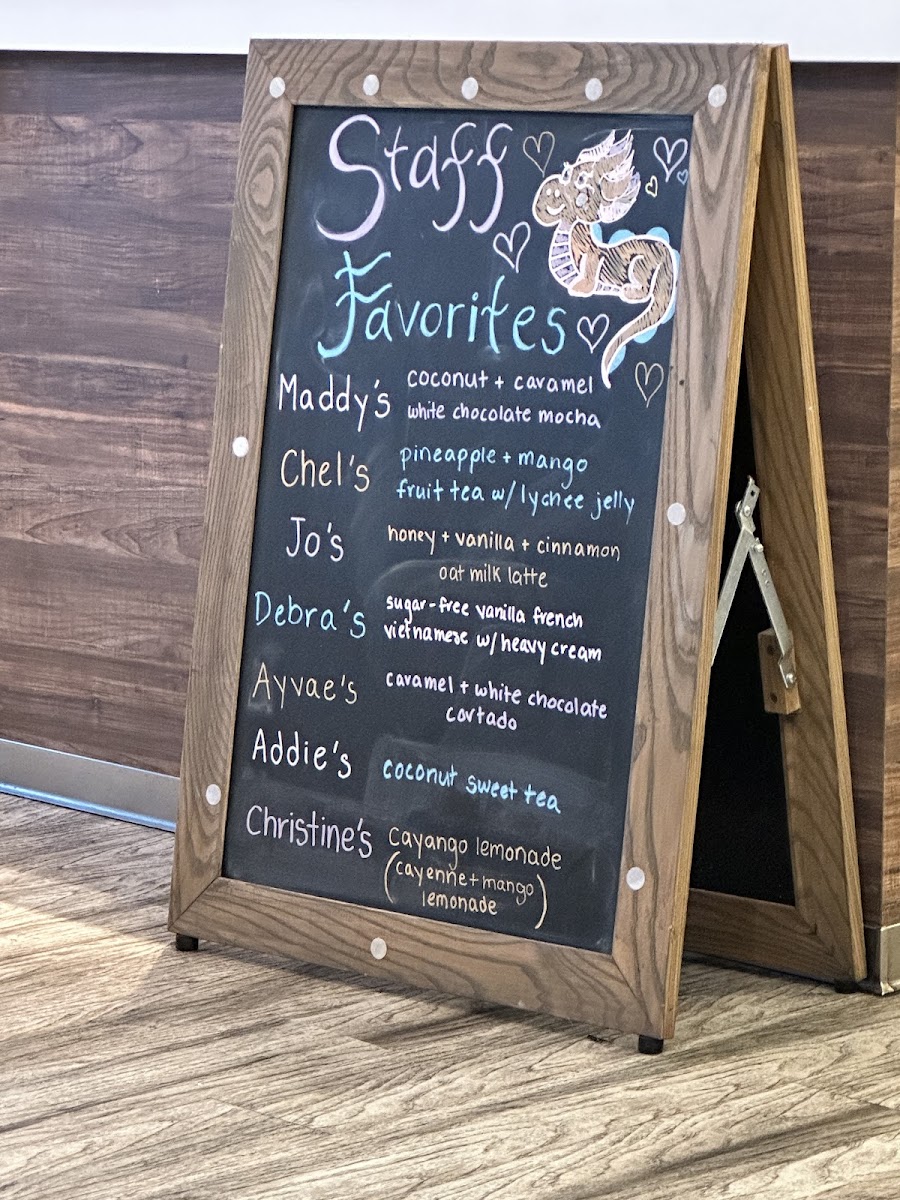 Staff
Favorites
Maddy's coconut + caramel
white chocolate mocha
Chel's pineapple + mango
fruit tea w/ lychee jelly
Jo's honey + vanilla + cinnamon
oat milk latte
Debra's sugar-free vanilla french
vietnamese w/ heavy cream
Ayvae's caramel + white chocolate
cortado
Addie's coconut sweet tea
Christine's cayango lemonade
(cayenne + mango
lemonade)